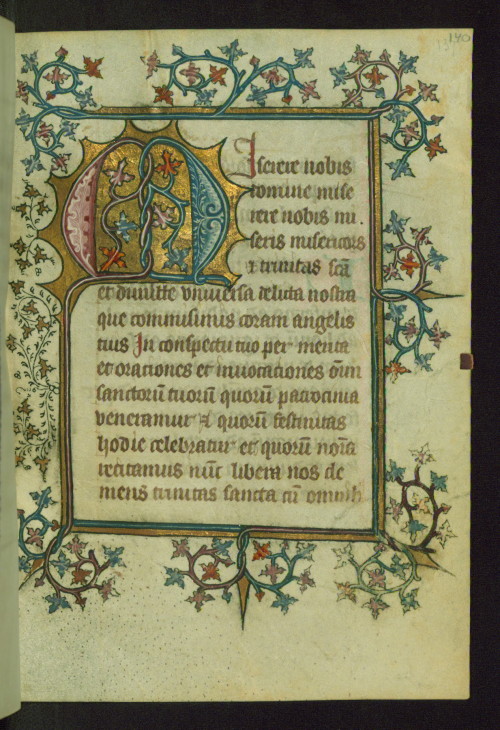 140
MIserere nobis
domine mise
rere nobis mi.
seris misericors
et trinitas scā
et dimitte vniuersa delicta nostra
que commisimus coram angelis
tuis In conspectu tuo per merita
et orationes et inuocationes oīm
sanctorū tuorū quorū patrocinia
veneramur et quorū festiuitas
hodie celebratur et quorū noīa
recitamus nūc libera nos de
mens trinitas sancta cū omnib